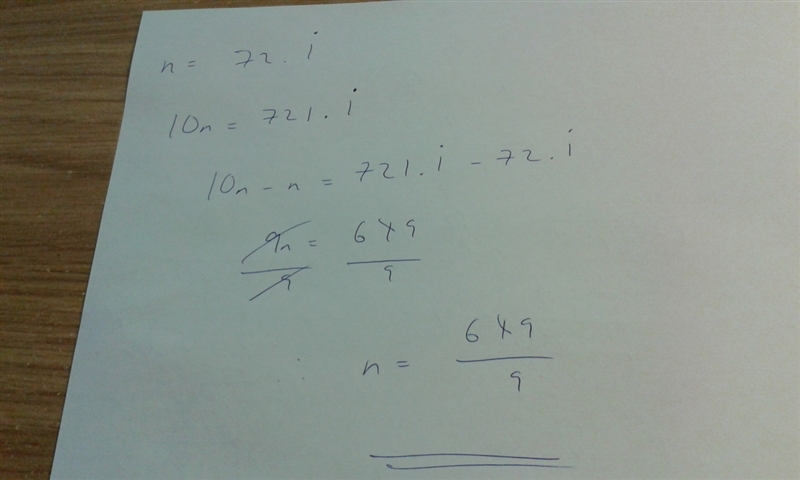 n = 72.1̇
10n = 721.1̇
10n - n = 721.1̇ - 72.1̇
9n/9 = 649/9
∴ n = 649/9